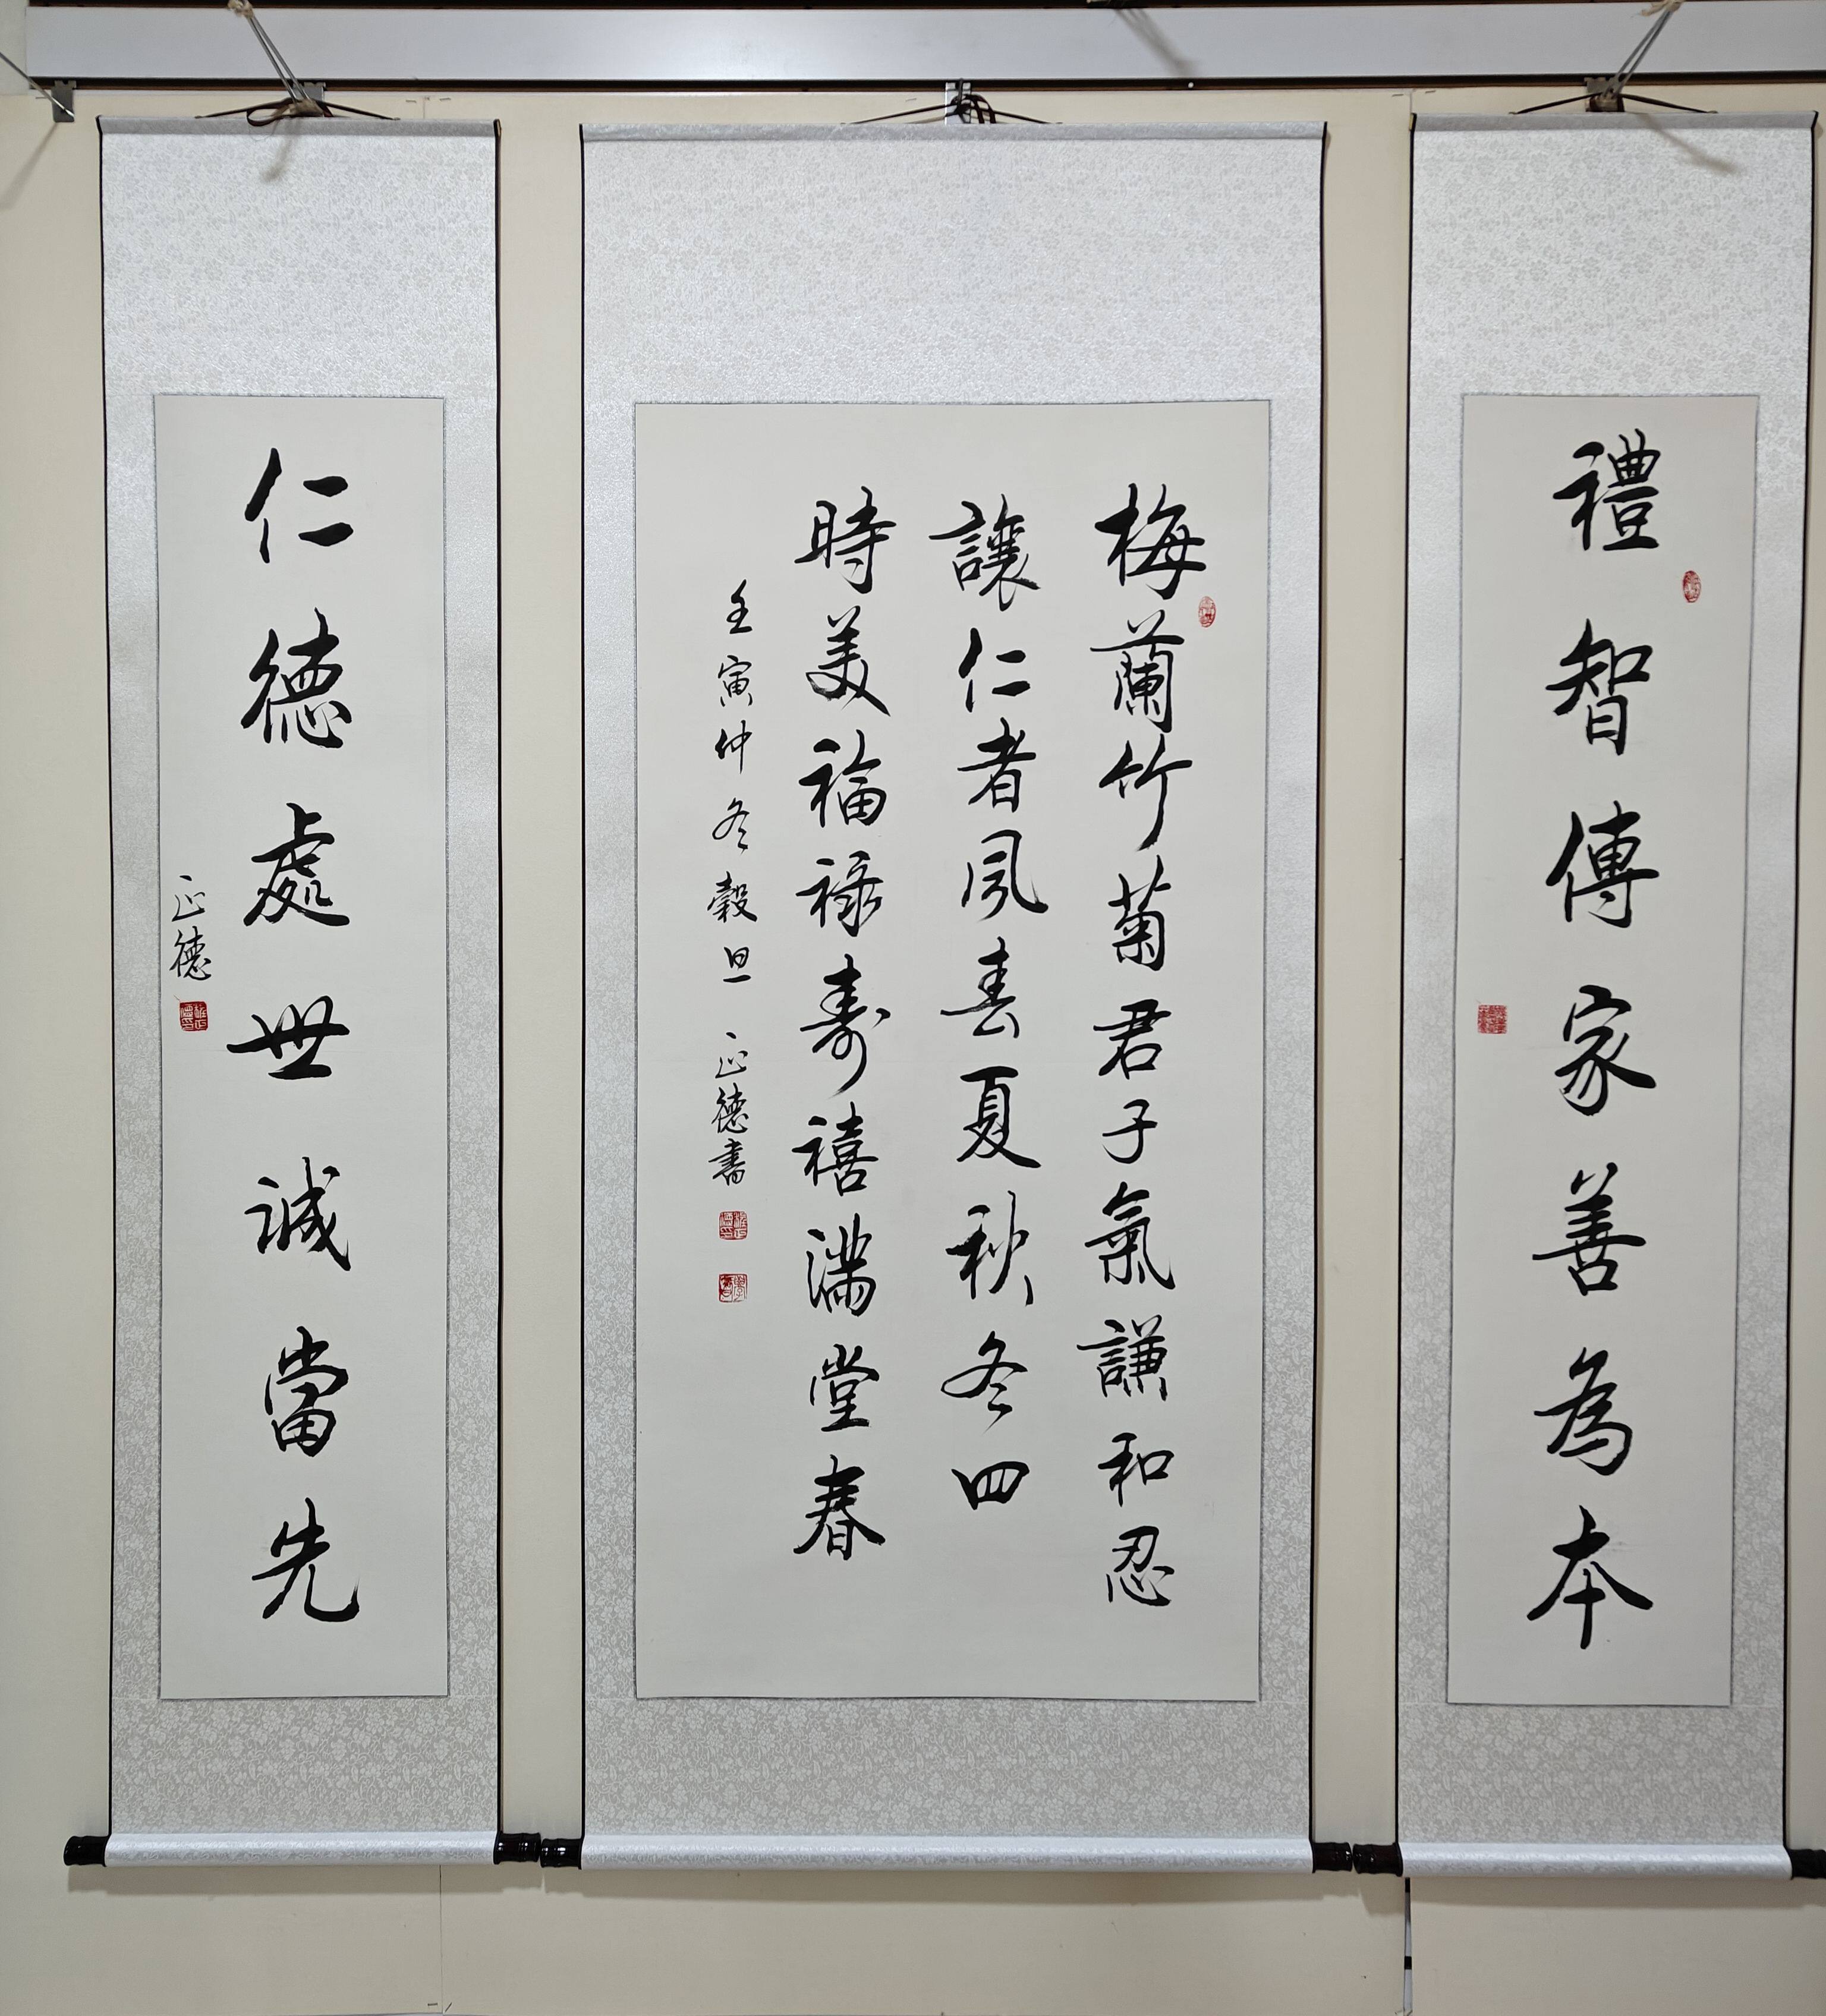 禮智傳家善為本
梅蘭竹菊君子氣謙和忍
讓仁者風春夏秋冬四
時美福祿壽禧滿堂春
壬寅仲冬穀旦 正德書
仁德處世誠當先
正德